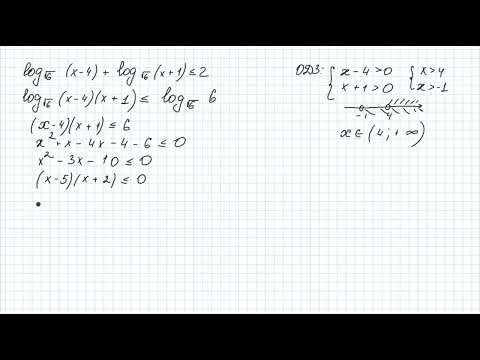 log√6 (x-4) + log√6 (x+1) ≤ 2
log√6 (x-4)(x+1) ≤ log√6 6
(x-4)(x+1) ≤ 6
x² + x - 4x - 4 - 6 ≤ 0
x² - 3x - 10 ≤ 0
(x-5)(x+2) ≤ 0
ОДЗ: { x-4>0 { x>4
x+1>0 x>-1
-1 4
x ∈ (4; +∞)